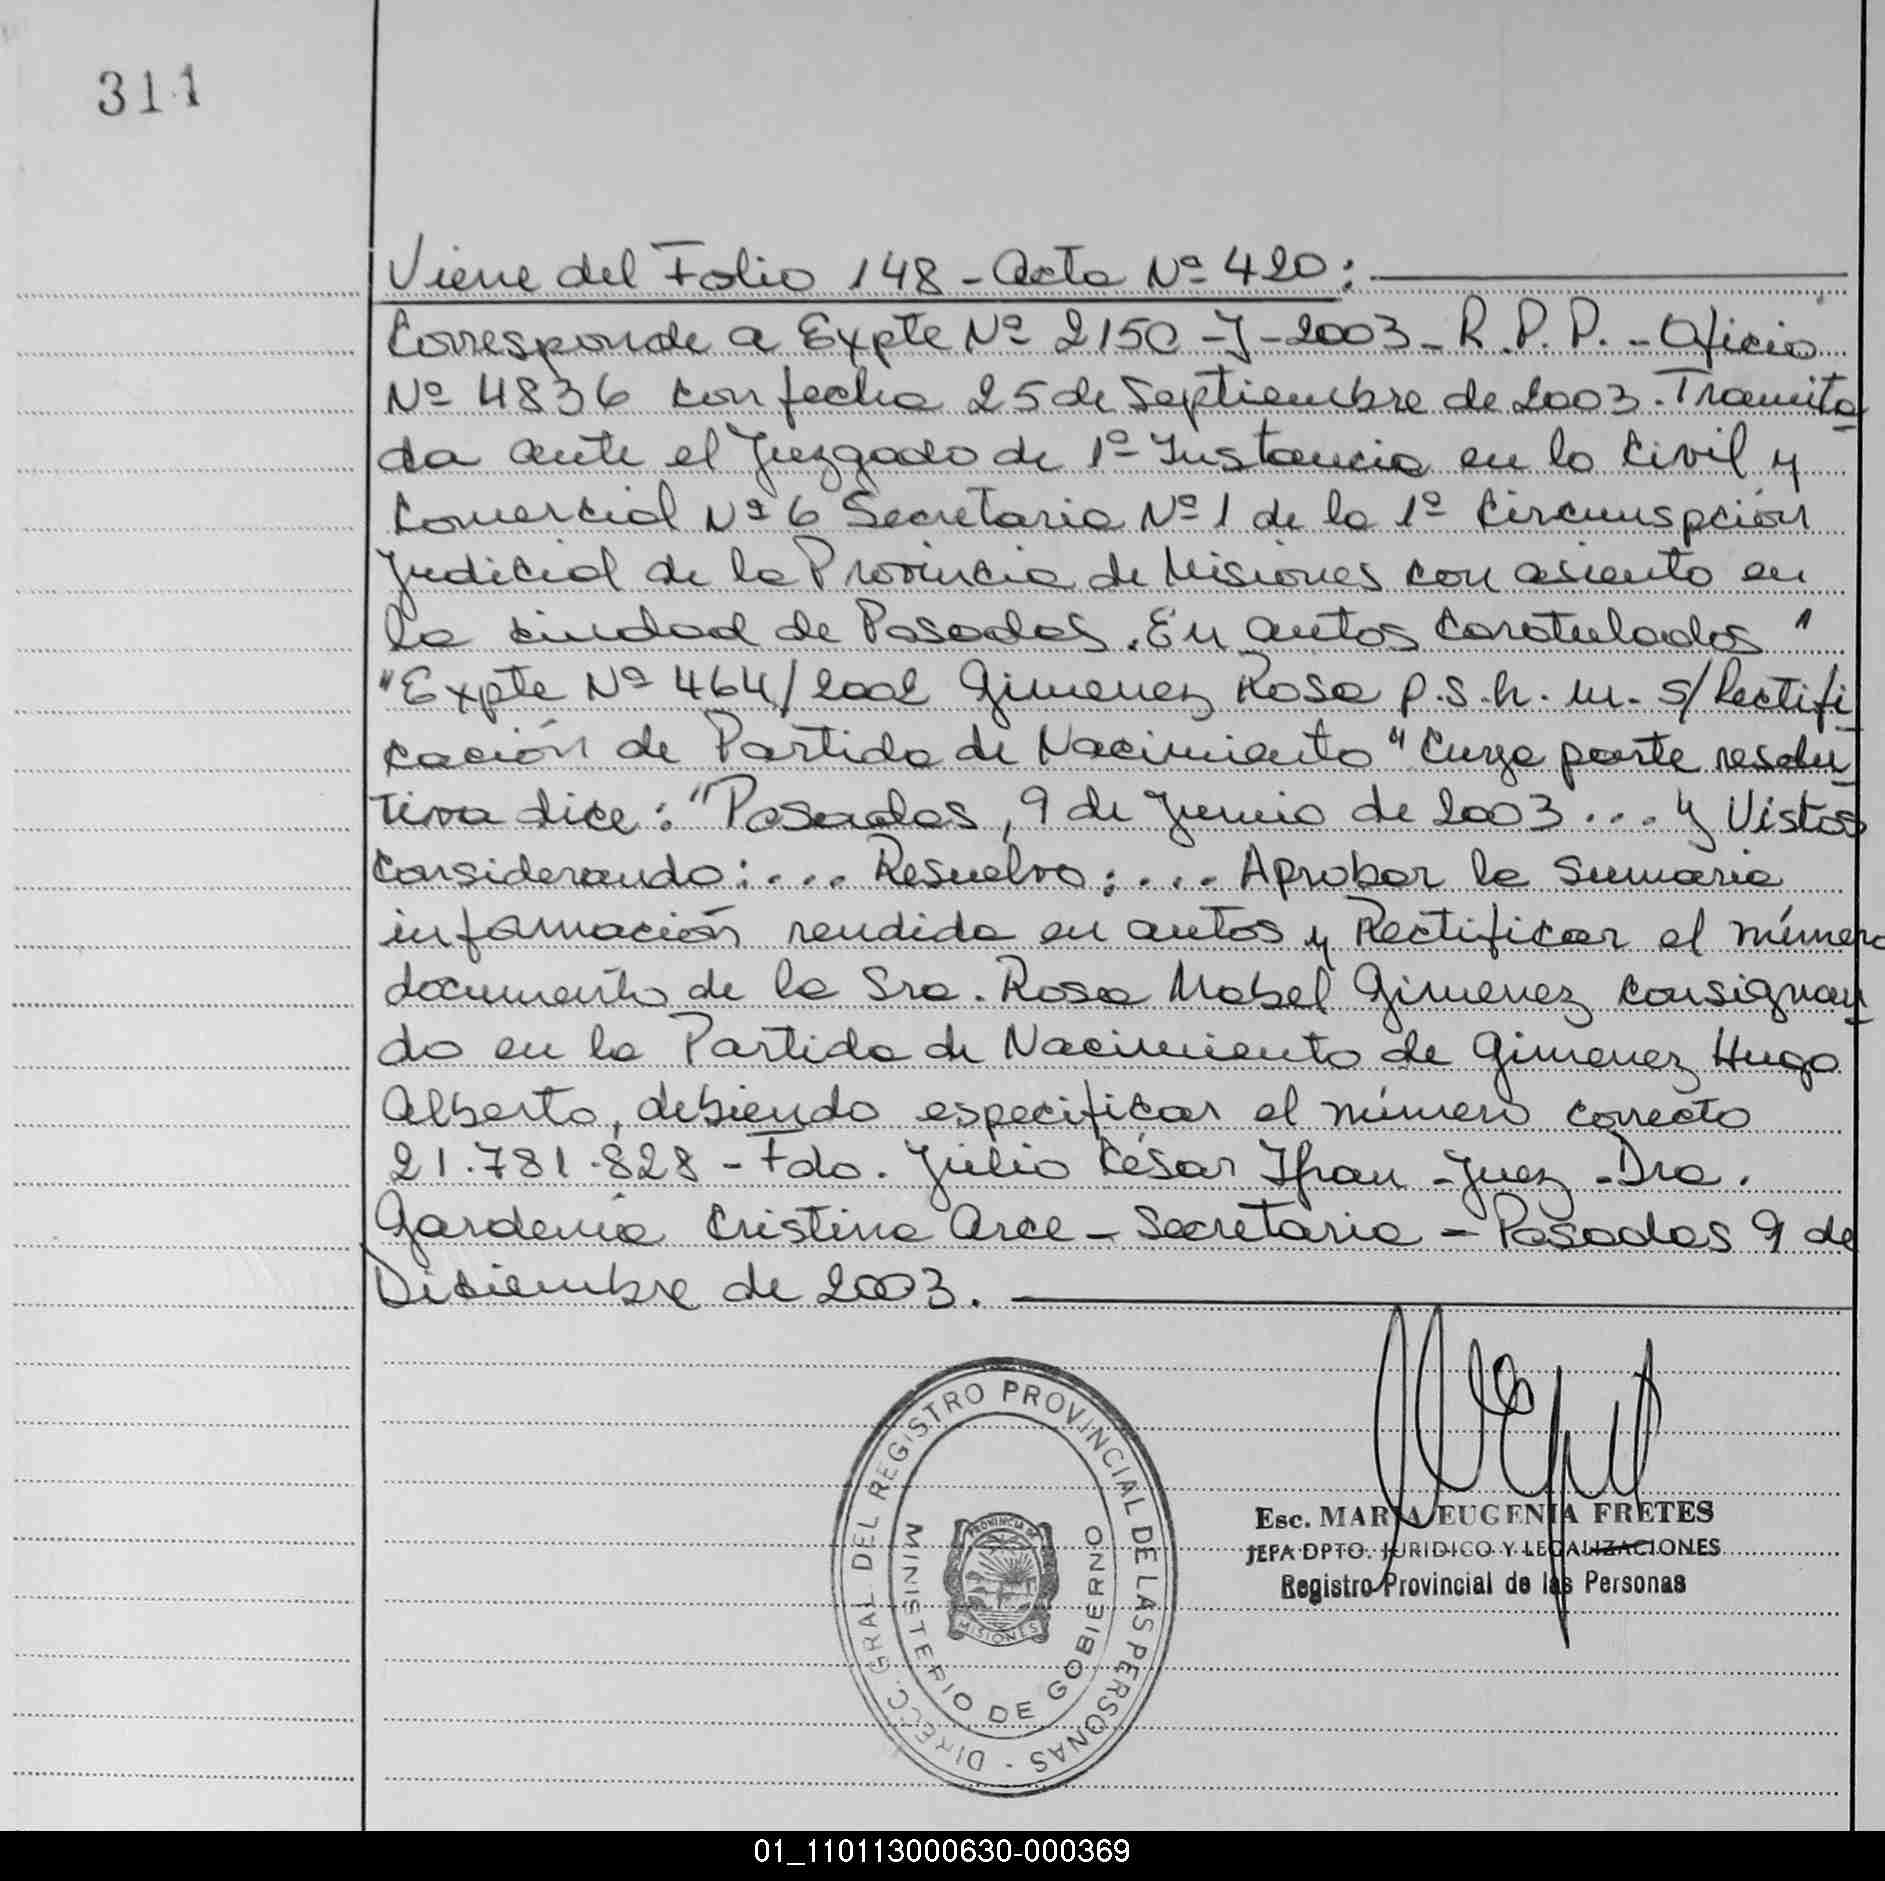 311
Viene del Folio 148 - Acta Nº 420:
Corresponde a Expte Nº 2150 - J - 2003 - R.P.P. - Oficio
Nº 4836 con fecha 25 de Septiembre de 2003. Tramita
da ante el Juzgado de 1º Instancia en lo Civil y
Comercial Nº 6 Secretaria Nº 1 de la 1º Circunspción
Judicial de la Provincia de Misiones con asiento en
la ciudad de Posadas. En autos caratulados "
"Expte Nº 464/2002 Gimenez Rosa p.s.h.m. s/Rectifi
cación de Partida de Nacimiento" Cuya parte resolu
tiva dice: "Posadas, 9 de Junio de 2003 .... y Vistos
Considerando: .... Resuelvo: .... Aprobar la sumaria
información rendida en autos y Rectificar el número
documento de la Sra. Rosa Mabel Gimenez consignan
do en la Partida de Nacimiento de Gimenez Hugo
Alberto, debiendo especificar el número correcto
21.781.828 - Fdo. Julio César Ifran - Juez - Dra.
Gardenia Cristina Arce - Secretaria - Posadas 9 de
Diciembre de 2003.
DIRECC. GRAL DEL REGISTRO PROVINCIAL DE LAS PERSONAS -
MINISTERIO DE GOBIERNO
PROVINCIA DE
MISIONES
Esc. MARIA EUGENIA FRETES
JEFA DPTO. JURIDICO Y LEGALIZACIONES
Registro Provincial de las Personas
01_110113000630-000369